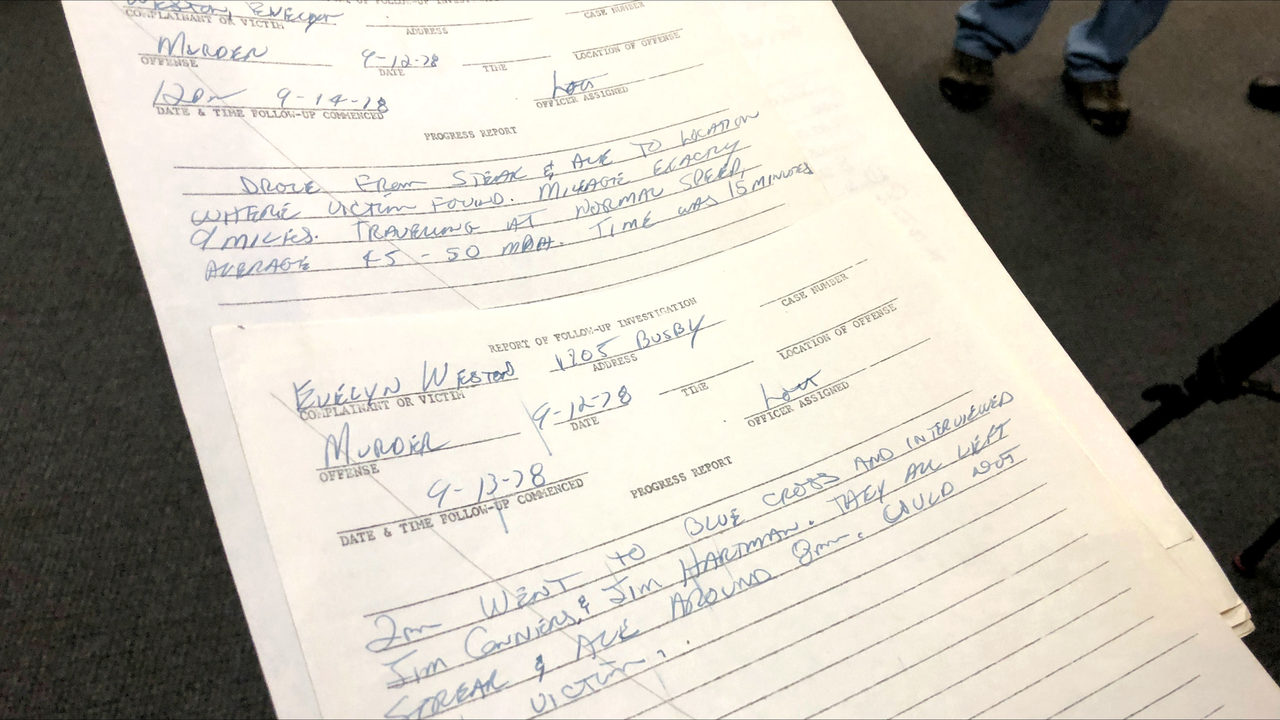 WESTON, EVELYN
COMPLAINANT OR VICTIM ADDRESS CASE NUMBER
MURDER 9-12-78
OFFENSE DATE TIME LOCATION OF OFFENSE
12pm 9-14-78 Lott
DATE & TIME FOLLOW-UP COMMENCED OFFICER ASSIGNED
PROGRESS REPORT
DROVE FROM STEAK & ALE TO LOCATION
WHERE VICTIM FOUND. MILEAGE EXACTLY
9 MILES. TRAVELING AT NORMAL SPEED,
AVERAGE 45-50 MPH. TIME WAS 15 MINUTES
REPORT OF FOLLOW-UP INVESTIGATION
EVELYN WESTON 1705 BUSBY
COMPLAINANT OR VICTIM ADDRESS CASE NUMBER
MURDER 9-12-78 Lott
OFFENSE DATE TIME LOCATION OF OFFENSE
9-13-78
DATE & TIME FOLLOW-UP COMMENCED OFFICER ASSIGNED
PROGRESS REPORT
2pm WENT TO BLUE CROSS AND INTERVIEWED
JIM CONNIERS & JIM HARTMAN. THEY ALL LEFT
STEAK & ALE AROUND 8pm. COULD NOT
VICTIM.